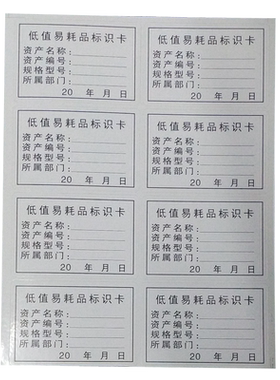 低值易耗品标识卡
资产名称：
资产编号：
规格型号：
所属部门：
20 年 月 日
低值易耗品标识卡
资产名称：
资产编号：
规格型号：
所属部门：
20 年 月 日
低值易耗品标识卡
资产名称：
资产编号：
规格型号：
所属部门：
20 年 月 日
低值易耗品标识卡
资产名称：
资产编号：
规格型号：
所属部门：
20 年 月 日
低值易耗品标识卡
资产名称：
资产编号：
规格型号：
所属部门：
20 年 月 日
低值易耗品标识卡
资产名称：
资产编号：
规格型号：
所属部门：
20 年 月 日
低值易耗品标识卡
资产名称：
资产编号：
规格型号：
所属部门：
20 年 月 日
低值易耗品标识卡
资产名称：
资产编号：
规格型号：
所属部门：
20 年 月 日